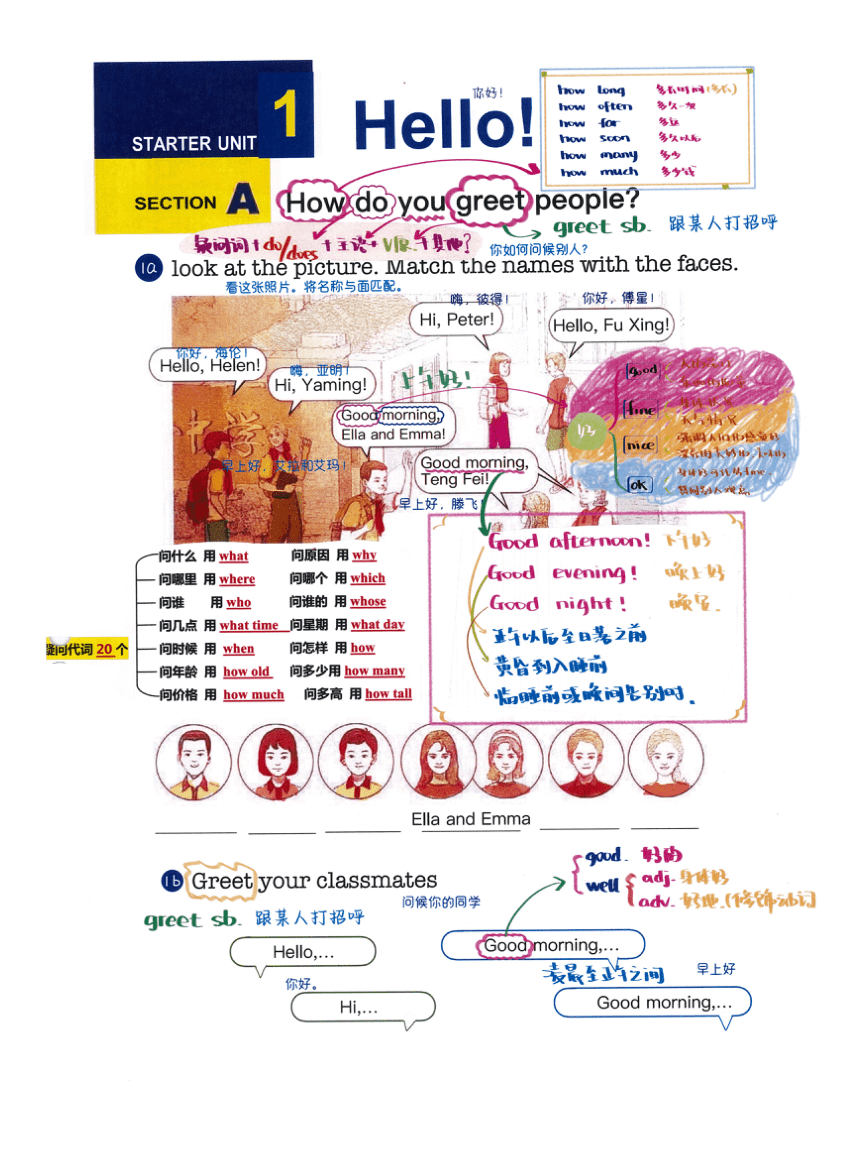 你好！
STARTER UNIT 1
Hello!
how long 多长时间(多长)
how often 多久一次
how far 多远
how soon 多久以后
how many 多少
how much 多少钱
SECTION A
How do you greet people?
greet sb. 跟某人打招呼
疑问词+do/does+主语+V原+其他?
你如何问候别人?
1a look at the picture. Match the names with the faces.
看这张照片。将名称与面匹配。
嗨，彼得！
Hi, Peter!
你好，傅星！
Hello, Fu Xing!
你好，海伦！
Hello, Helen!
嗨，亚明！
Hi, Yaming!
上午好！
Good morning,
Ella and Emma!
早上好，艾拉和艾玛！
Good morning,
Teng Fei!
早上好，滕飞！
中学
好
good
fine
nice
ok
Good afternoon! 下午好
Good evening! 晚上好
Good night! 晚安.
正午以后至日暮之前
黄昏到入睡前
临睡前或晚间告别时.
疑问代词 20 个
问什么 用 what 问原因 用 why
问哪里 用 where 问哪个 用 which
问谁 用 who 问谁的 用 whose
问几点 用 what time 问星期 用 what day
问时候 用 when 问怎样 用 how
问年龄 用 how old 问多少用 how many
问价格 用 how much 问多高 用 how tall
Ella and Emma
good. 好的
well adj. 身体好
adv. 好地.(修饰动词
1b Greet your classmates
问候你的同学
greet sb. 跟某人打招呼
Hello,…
你好。
Hi,…
Good morning,…
凌晨至正午之间
早上好
Good morning,…